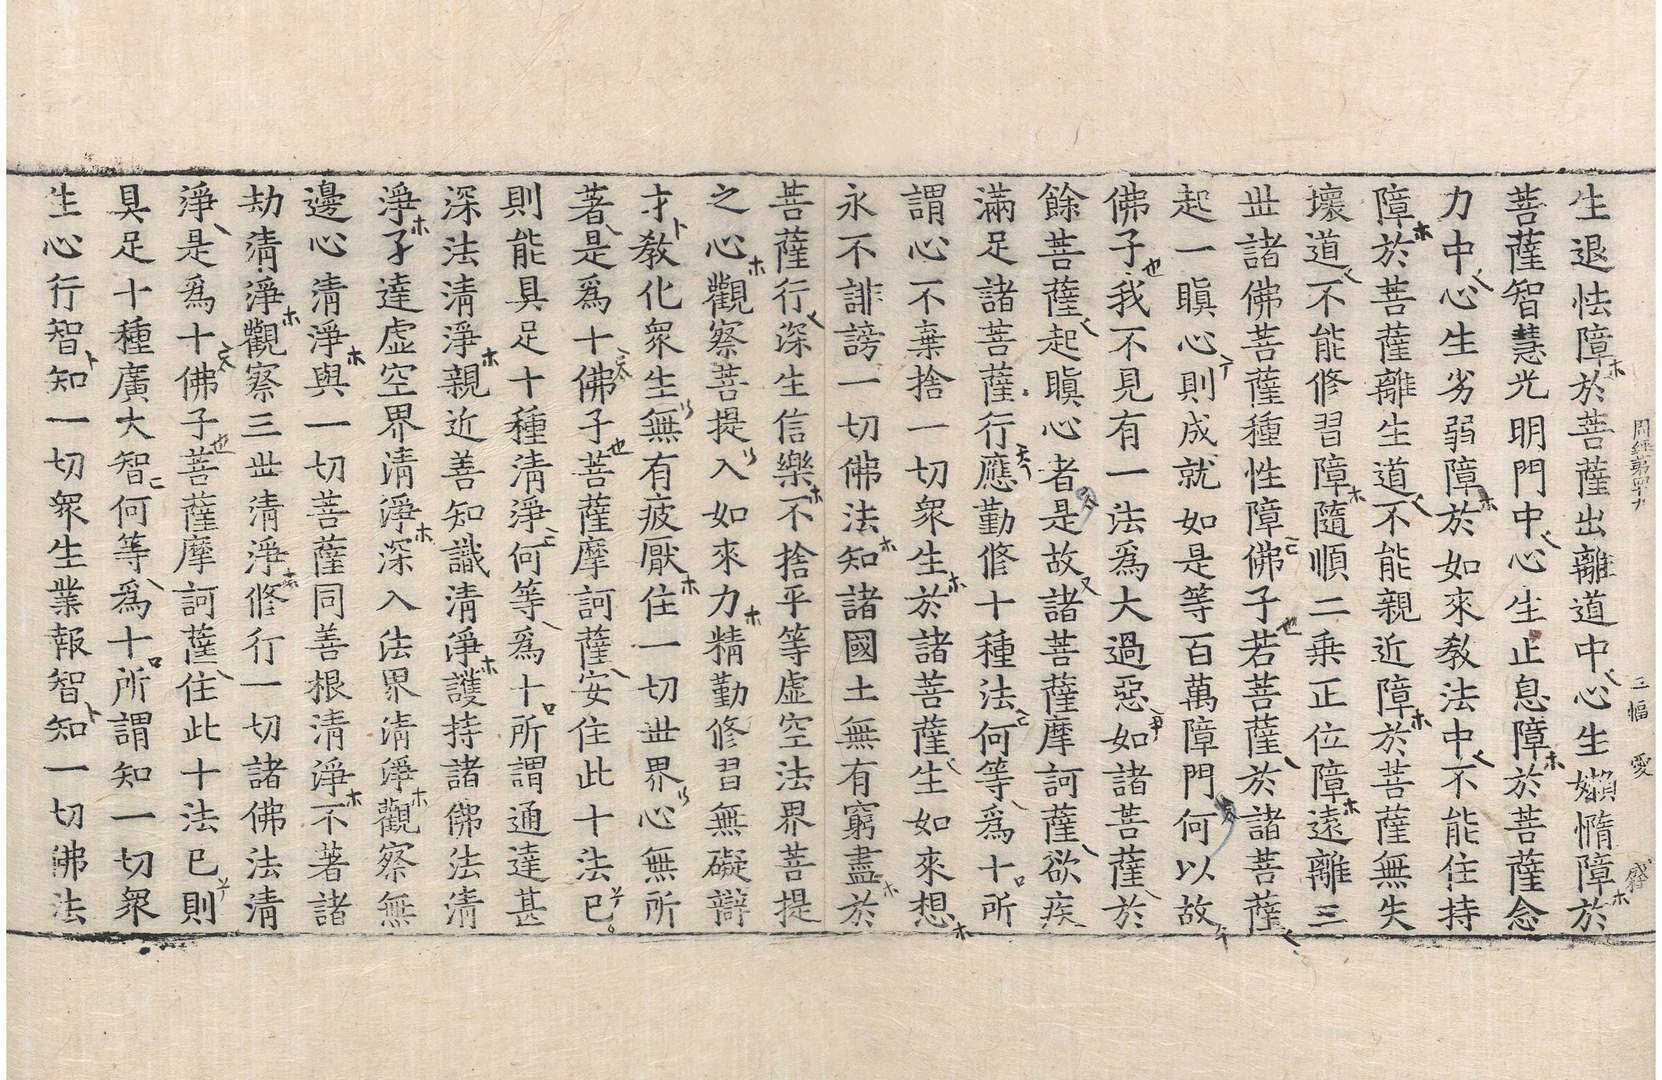 周經第四十九 三幅 愛
生退怯障於菩薩出離道中心生嬾惰障於
菩薩智慧光明門中心生止息障於菩薩念
力中心生劣弱障於如來教法中不能住持
障於菩薩離生道不能親近障於菩薩無失
壞道不能修習障隨順二乗正位障遠離三
丗諸佛菩薩種性障佛子若菩薩於諸菩薩
起一瞋心則成就如是等百萬障門何以故
佛子我不見有一法爲大過惡如諸菩薩於
餘菩薩起瞋心者是故諸菩薩摩訶薩欲疾
滿足諸菩薩行應勤修十種法何等爲十所
謂心不棄捨一切衆生於諸菩薩生如來想
永不誹謗一切佛法知諸國土無有窮盡於
菩薩行深生信樂不捨平等虛空法界菩提
之心觀察菩提入如來力精勤修習無礙辯
才教化衆生無有疲厭住一切丗界心無所
著是爲十佛子菩薩摩訶薩安住此十法已
則能具足十種清淨何等爲十所謂通達甚
深法清淨親近善知識清淨護持諸佛法清
淨了達虛空界清淨深入法界清淨觀察無
邊心清淨與一切菩薩同善根清淨不著諸
劫清淨觀察三丗清淨修行一切諸佛法清
淨是爲十佛子菩薩摩訶薩住此十法已則
具足十種廣大智何等爲十所謂知一切衆
生心行智知一切衆生業報智知一切佛法